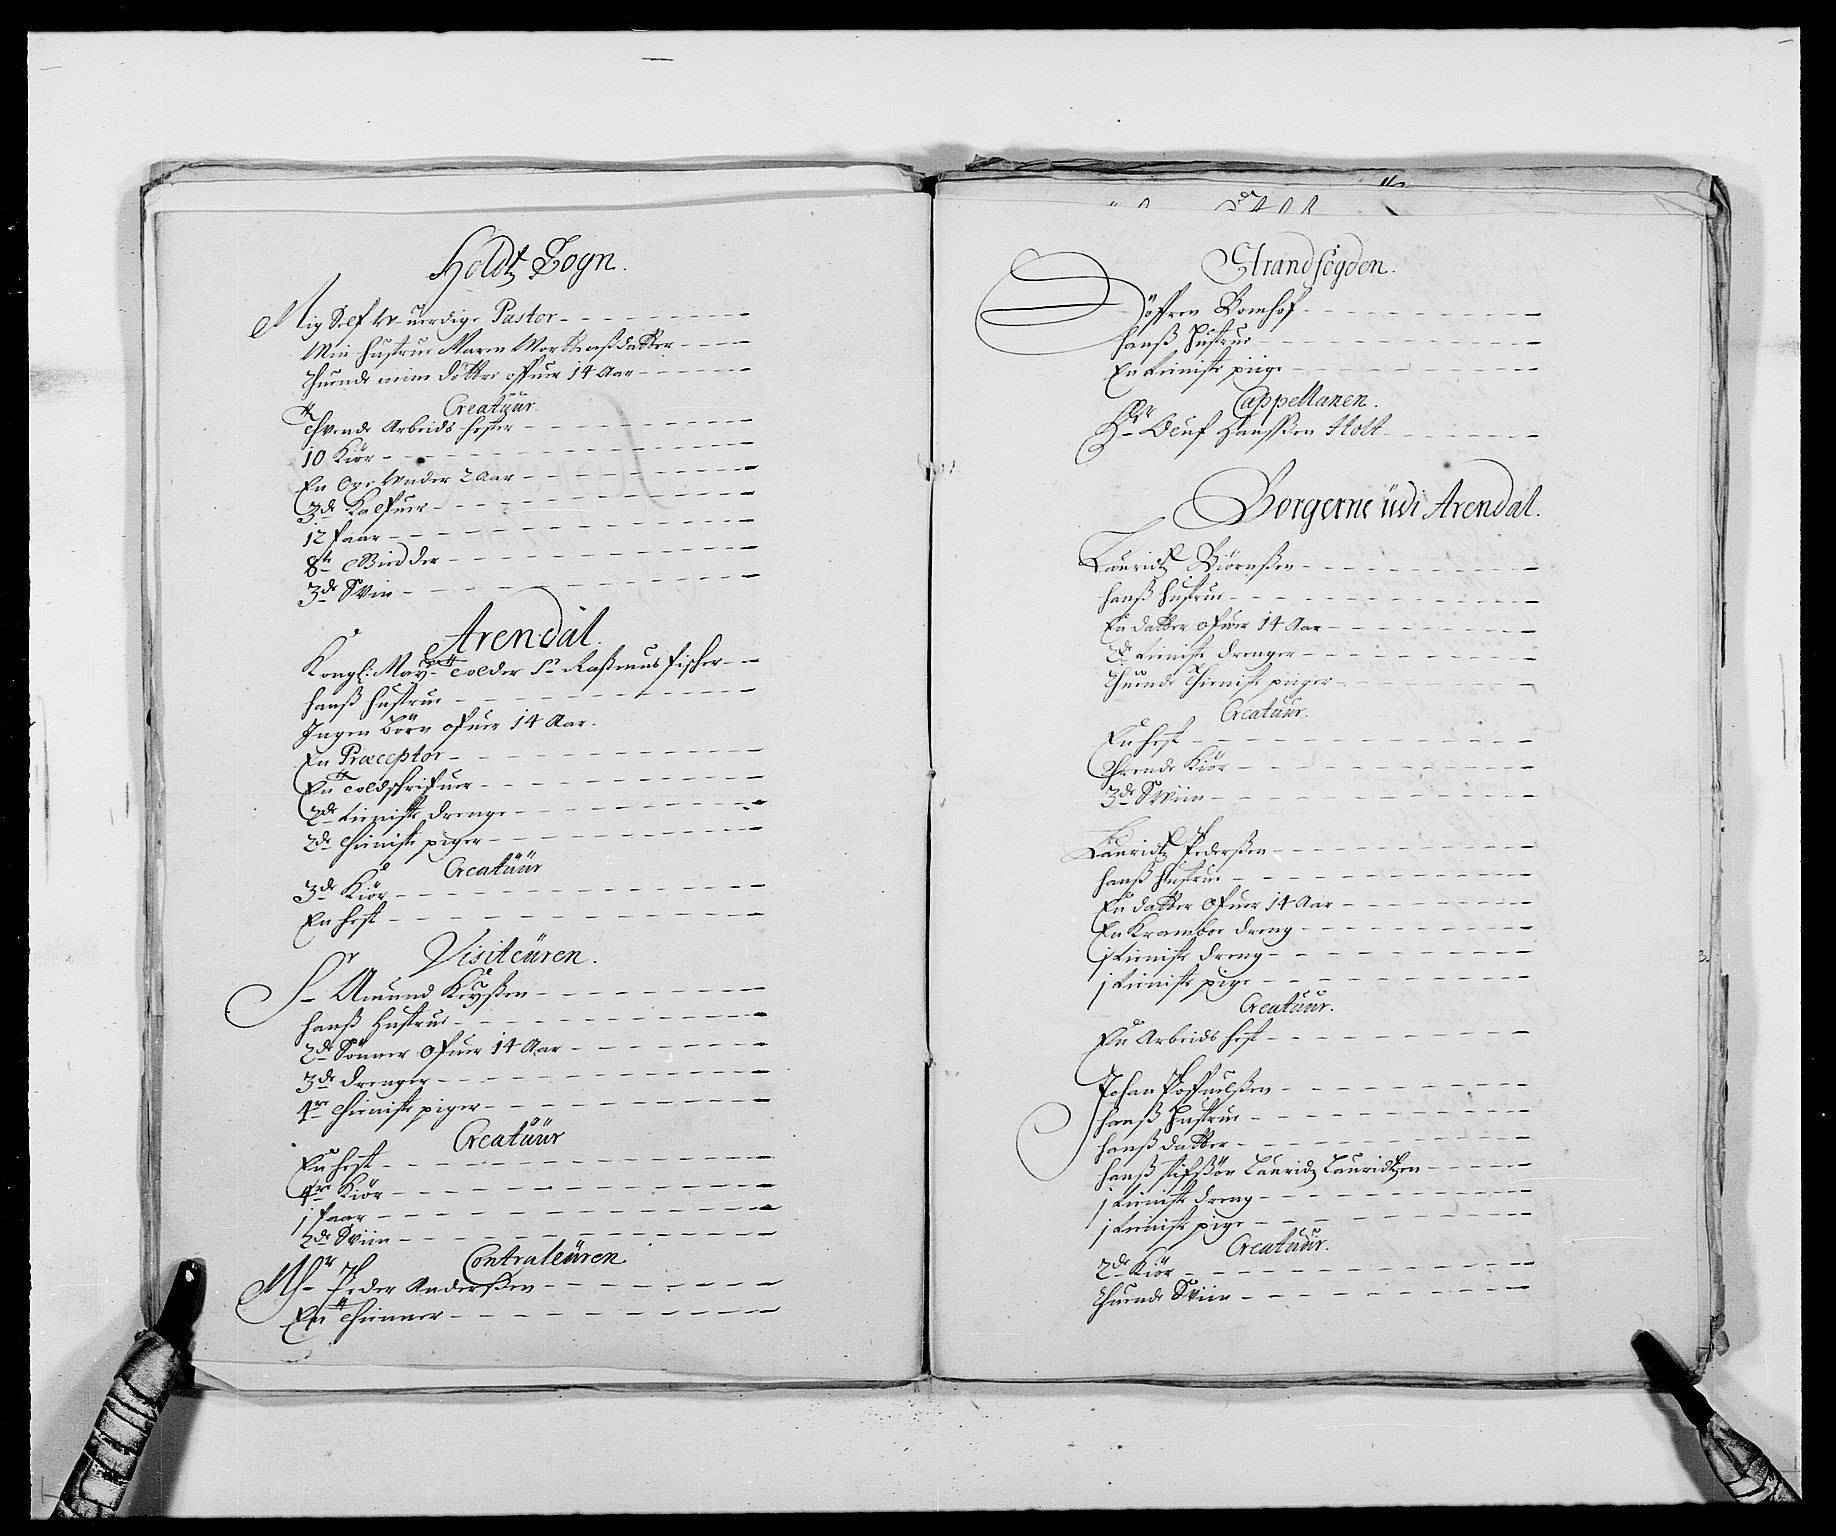 Holdt Sogn.
Mig Self W-uerdige Pastor
Min Hustrue Maren Mortensdatter
Thuende mine döttre offuer 14 Aar
Creatüur
Thvende Arbeids Hester
10 Kiör
En Oxe Under 2 Aar
3de Kalfuer
12 faar
8te Biedder
3de Svin
Arendal.
Kongl: May: Tolder Sr Rasmus Fischer
Hanß Hustrue
Ingen Börn ofuer 14 Aar.
En Præceptor
En Toldschrifuer
2de tieniste drenge
2de thieniste piger
Creatüur
3de Kiör
En Hest
Visiteüren.
Sr Amund Keyßen
Hanß Hustrue
2de Sönner Ofuer 14 Aar
3de drenger
4re thieniste piger
Creatüur
En Hest
4re Kiör
1 faar
2de Sviin
Contraleüren
Mhr Peder Anderßen
En Thienner
Strandfogden.
Söffren Bomhof
Hanß Hustrue
En tieniste piige
Cappellanen.
Hr Oluf Hansßen Holt
Borgerne udi Arendal.
Lauridtz Biörnßen
Hanß Hustrue
En datter Ofuer 14 Aar
2de tieniste drenger
Thuende Thieniste piiger
Creatüur.
En Hest
Thvende Kiör
3de Sviin
Lauridtz Pederßen
Hanß Hustrue
En datter Ofuer 14 Aar
En Kramboe dreng
1 tieniste dreng
1 tieniste pige
Creatuur.
En Arbeids Hest
Johan Pofuelßen
Hanß Hustrue
Hanß datter
Hanß stifsön Lauridtz Lauridtzen
1 tieniste dreng
1 tieniste pige
Creatuur.
2de Kiör
Thuende Sviin